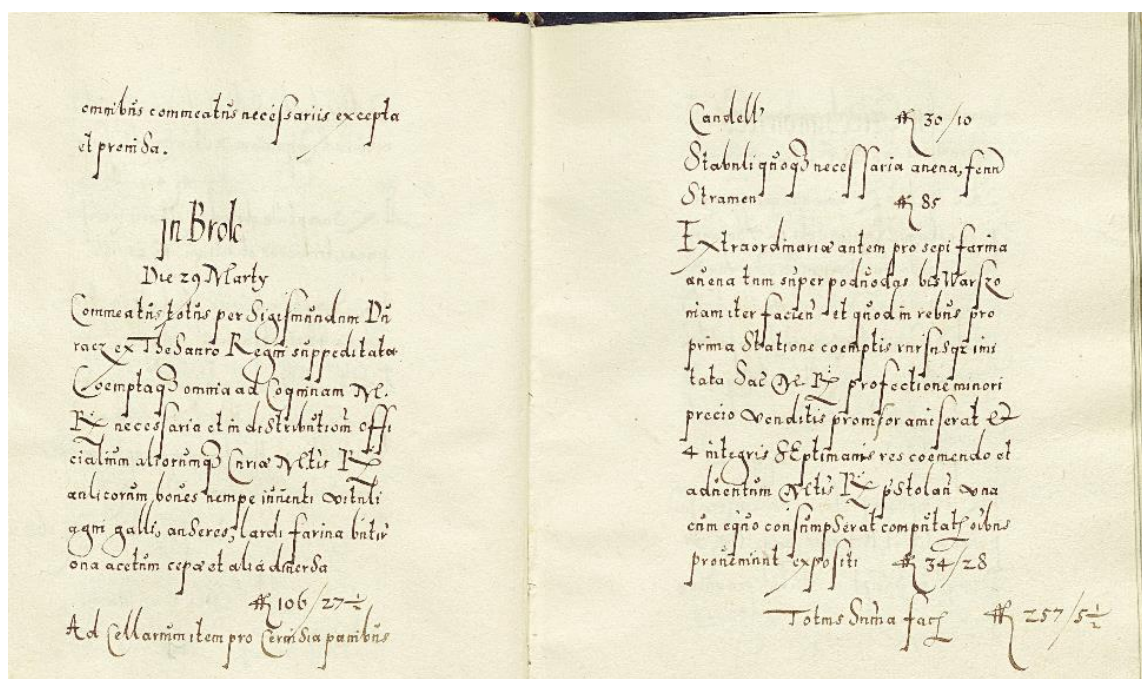 omnibus commeatus necessariis excepta
et provisa.
in Brok
Die 29 Marty
Commeatus totus per Sigismundum Du
racz ex Thesauro Regni suppeditata
Coemptaq₃ omnia ad Coquinam M.
Rx necessaria et in distributiom offi
cialium aliorumq₃ Curiæ Mtis Rx
aulicorum, boves nempe iuventi vituli
agni galli, anseres, lardi farina butir
ova acetum cepæ et alia diversa
106/27½
Ad Cellarium item pro Cervisia panibus
Candell
30/10
Stabuli quoq₃ necessaria avena, fenn
Stramen
85
Extraordinariæ autem pro sepi farina
avena tum super podvodas bis Warszo
viam iter facien et quod in rebus pro
prima Statione coemptis rursusqz imi
tata Sac M. Rx profectione minori
precio venditis provisor amiserat et
4 integris Septimanis res coemendo et
adventum Mtis Rx pstolan una
cum equo consumpserat computat oibus
proveniunt expositi
34/28
Totius Suma fac
257/5½